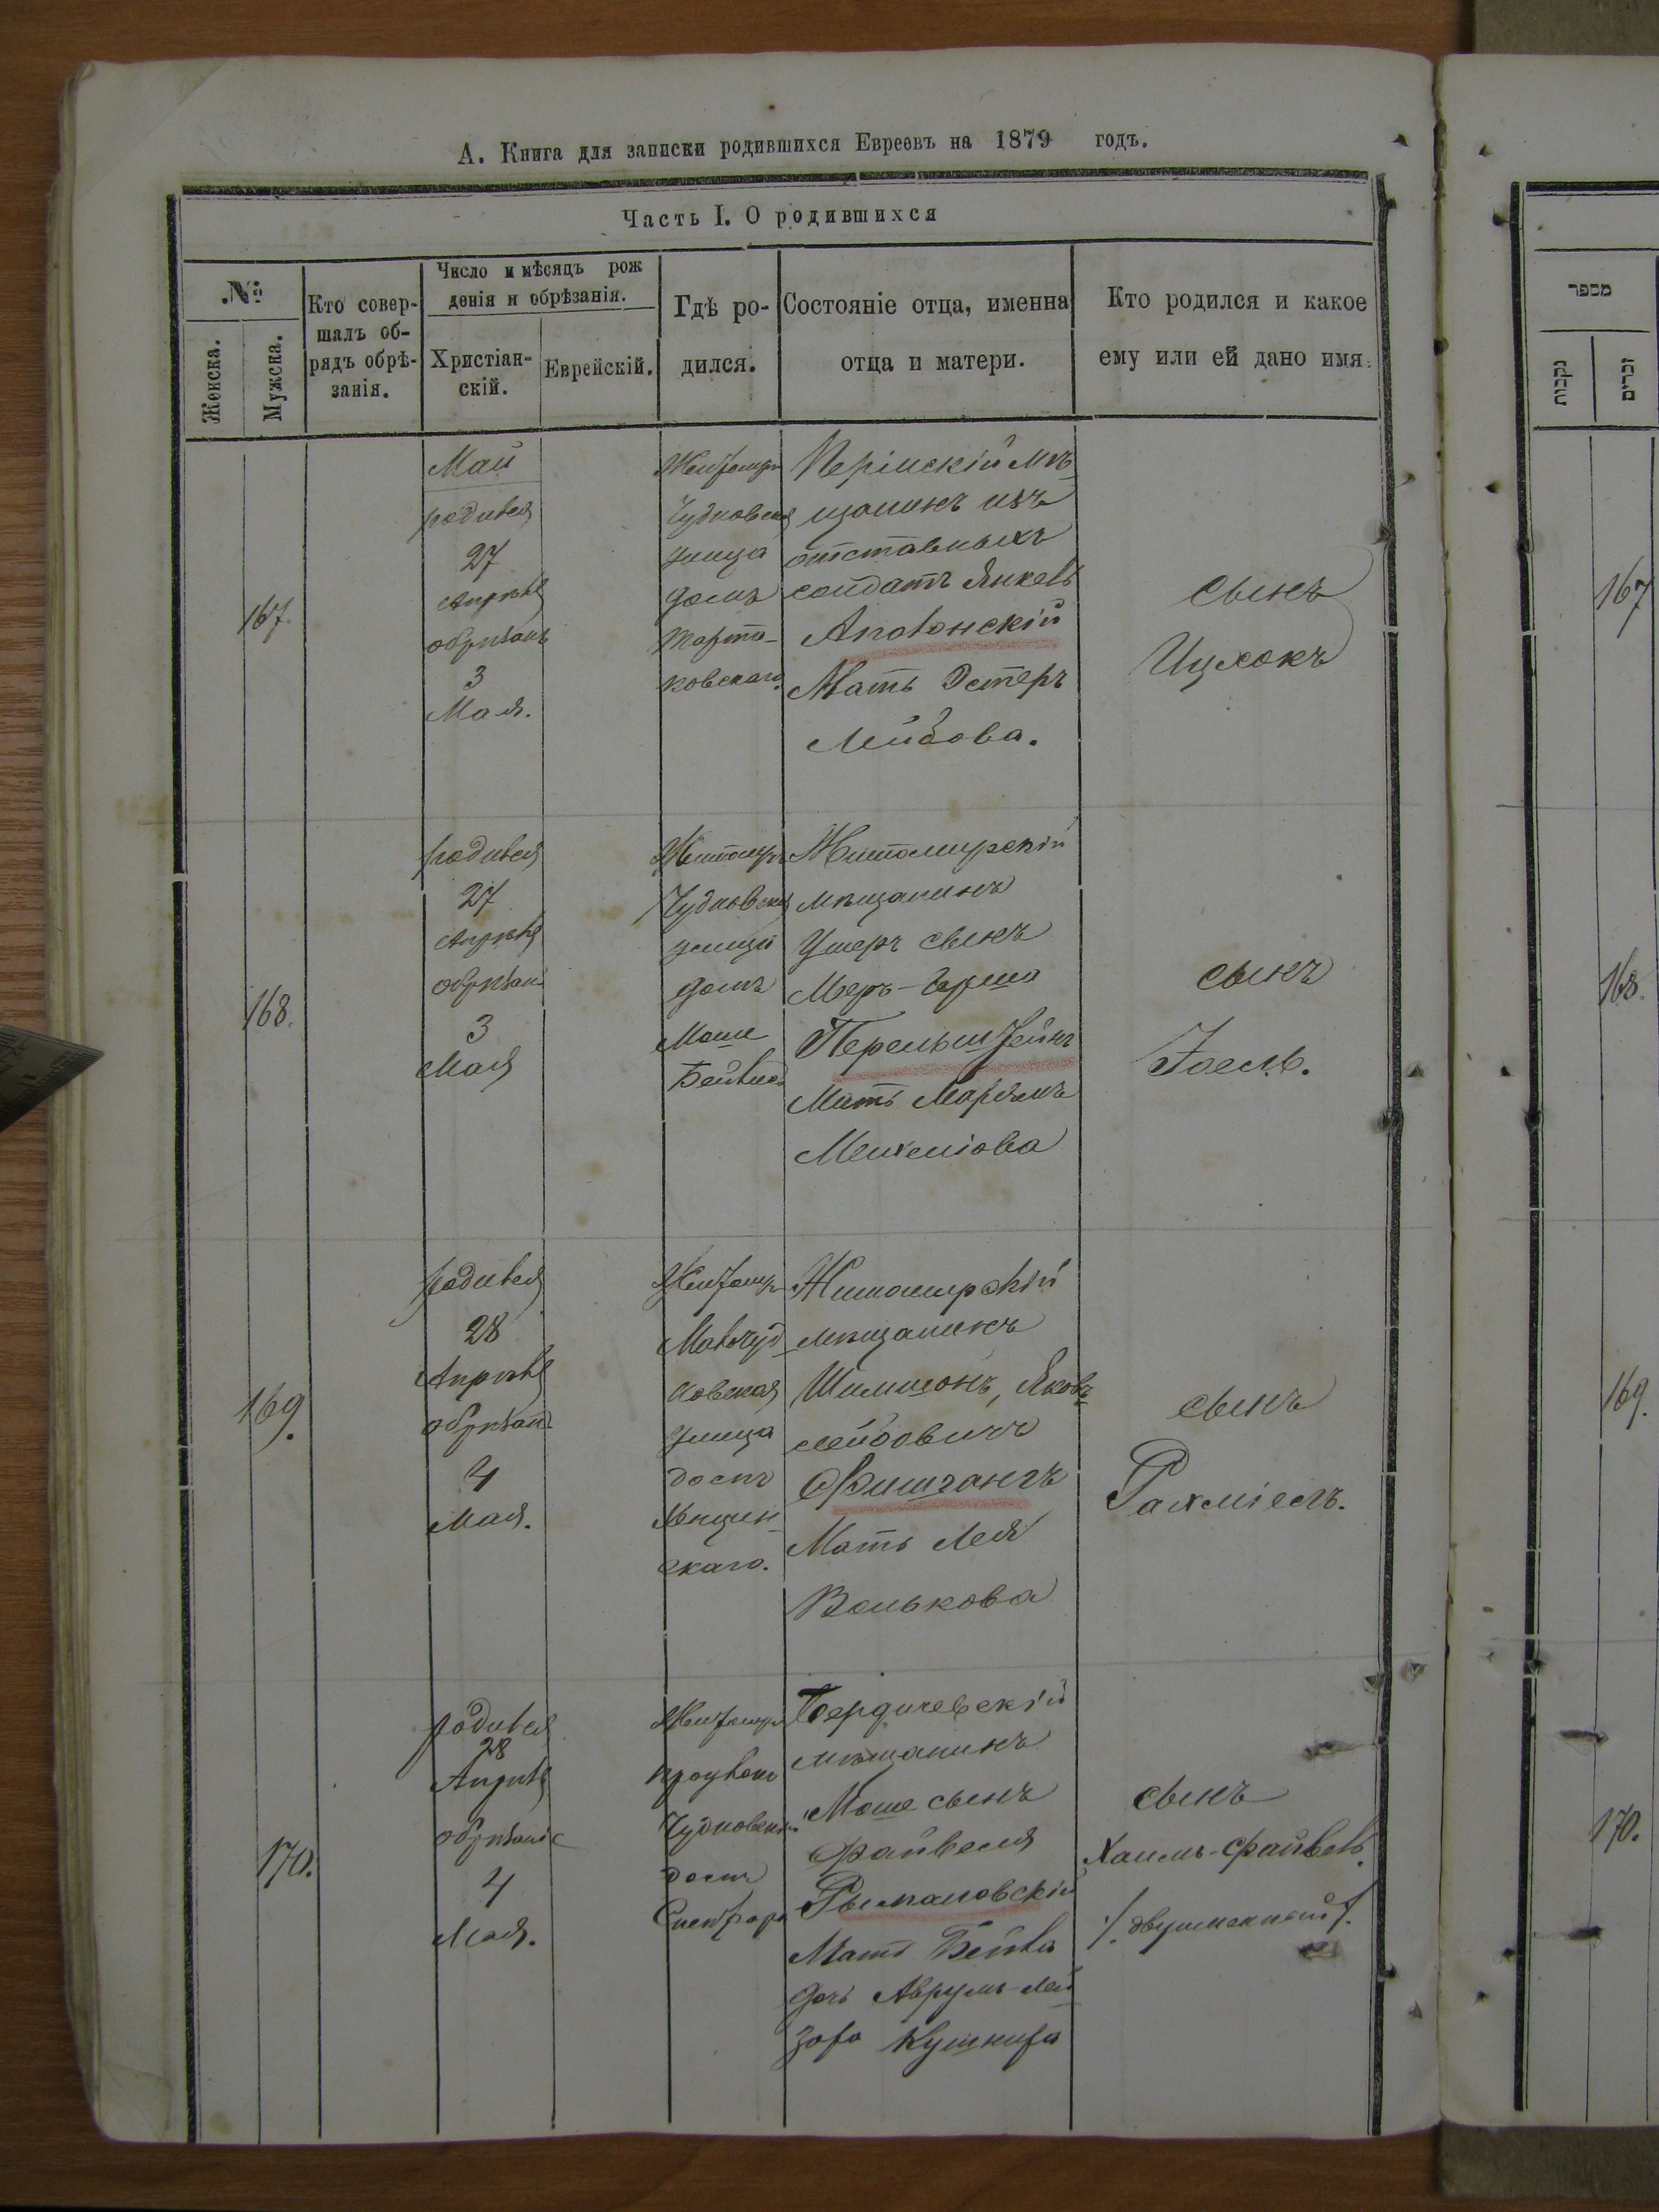 А. Книга для записки родившихся Евреевъ на 1879 годъ.
Часть I. О родившихся
№
Женска.
Мужска.
Кто совер-
шалъ об-
рядъ обрѣ-
занія.
Число и мѣсяцъ рож
денія и обрѣзанія.
Христіан-
скій.
Еврейскій.
Гдѣ ро-
дился.
Состояніе отца, именна
отца и матери.
Кто родился и какое
ему или ей дано имя.
167.
Май
родился
27
Апрѣля
обрѣзанъ
3
Мая.
Житомиръ
Чудновская
улица
домъ
ковскаго.
мѣ
щанинъ изъ
отставныхъ
солдатъ Янкель
Мать Эстеръ
Лейбова.
сынъ
Ицхокъ
168.
родился
27
Апрѣля
обрѣзан
3
Мая
Житомиръ
Чудновская
улица
домъ
Моше
Житомирскій
мѣщанинъ
Ушеръ сынъ
Меръ-Герша
Перельштейнъ
Мать Марьямъ
сынъ
Іоель.
169.
родился
28
Апрѣля
обрѣзан
4
Мая.
Житомиръ
Малочуд
новская
улица
домъ
скаго.
Житомирскій
мѣщанинъ
Шимшонъ, Яковъ
лейбовичъ
Фишгангъ
Мать Лея
Волькова
сынъ
Рахміель.
170.
родился
28
Апрѣля
обрѣзаніе
4
Мая.
Житомиръ
домъ
Бердичевскій
мѣщанинъ
Моше сынъ
Файвеля
Рымаловскій
Мать Бейла
дочь Аврумъ-Лей
зора Кушнира
сынъ
Хаимъ-Файвель
/. двуименный /.
מספר
נקבות
זכרים
167
168.
169.
170.